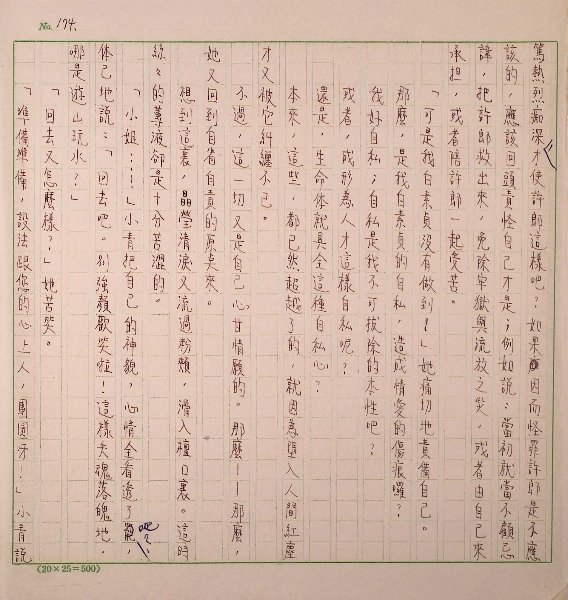 No. 174.
篤熱烈痴深才使許郎這樣吧？如果因而怪罪許郎是不應
該的，應該回頭責怪自己才是；例如說：當初就當不顧忌
諱，把許郎救出來，免除牢獄與流放之災，或者由自己來
承担，或者陪許郎一起受苦。
「可是我白素貞沒有做到！」她痛切地責備自己。
那麼，是我白素貞的自私，造成情愛的傷痕囉？
我好自私；自私是我不可拔除的本性吧？
或者，成形為人才這樣自私呢？
還是，生命体就具全這種自私心？
本來，這些，都已然超越了的，就因為墮入人間紅塵
才又被它糾纏不已。
不過，這一切又是自己心甘情願的。那麼——那麼，
她又回到自省自責的原点來。
想到這裏，晶瑩清淚又流過粉頰，滑入檀口裏。這時
絲々的蕚液卻是十分苦澀的。
「小姐……！」小青把自己的神貌，心情全看透了吧？
体己地說：「回去吧。別強顏歡笑啦！這樣失魂落魄地，
哪是遊山玩水？」
「回去又怎麼樣？」她苦笑。
「準備準備，設法跟您的心上人，團圓牙！」小青說
(20×25=500)